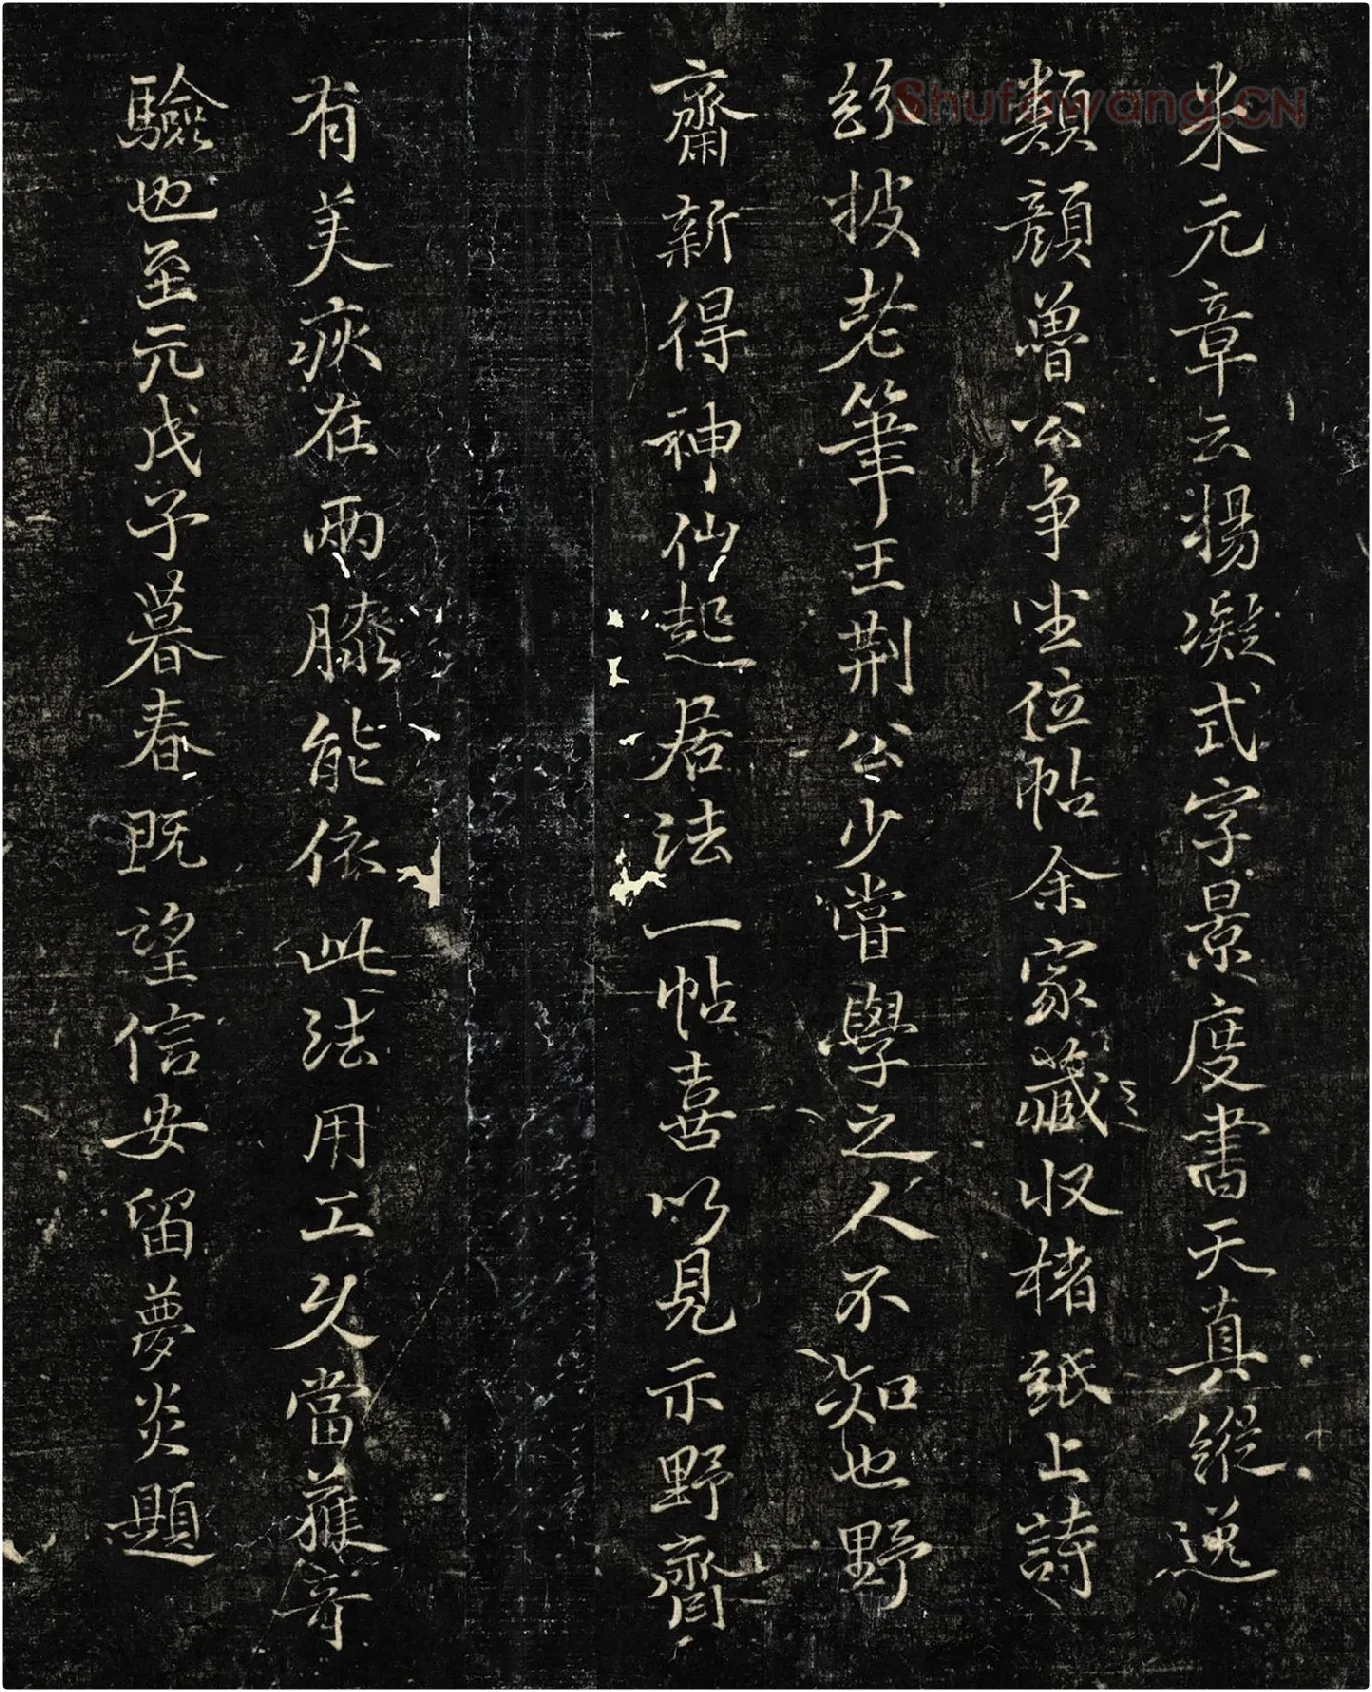 米元章云揚凝式字景度書天真縱逸
類顔魯公争坐位帖余家藏収楮紙上詩
斂披老筆王荆公少嘗學之人不知也野
齋新得神仙起居法一帖喜以見示野齋
有美疢在兩膝能依此法用工久當獲奇
驗也至元戊子暮春既望信安留夢炎題
Shufawang.CN